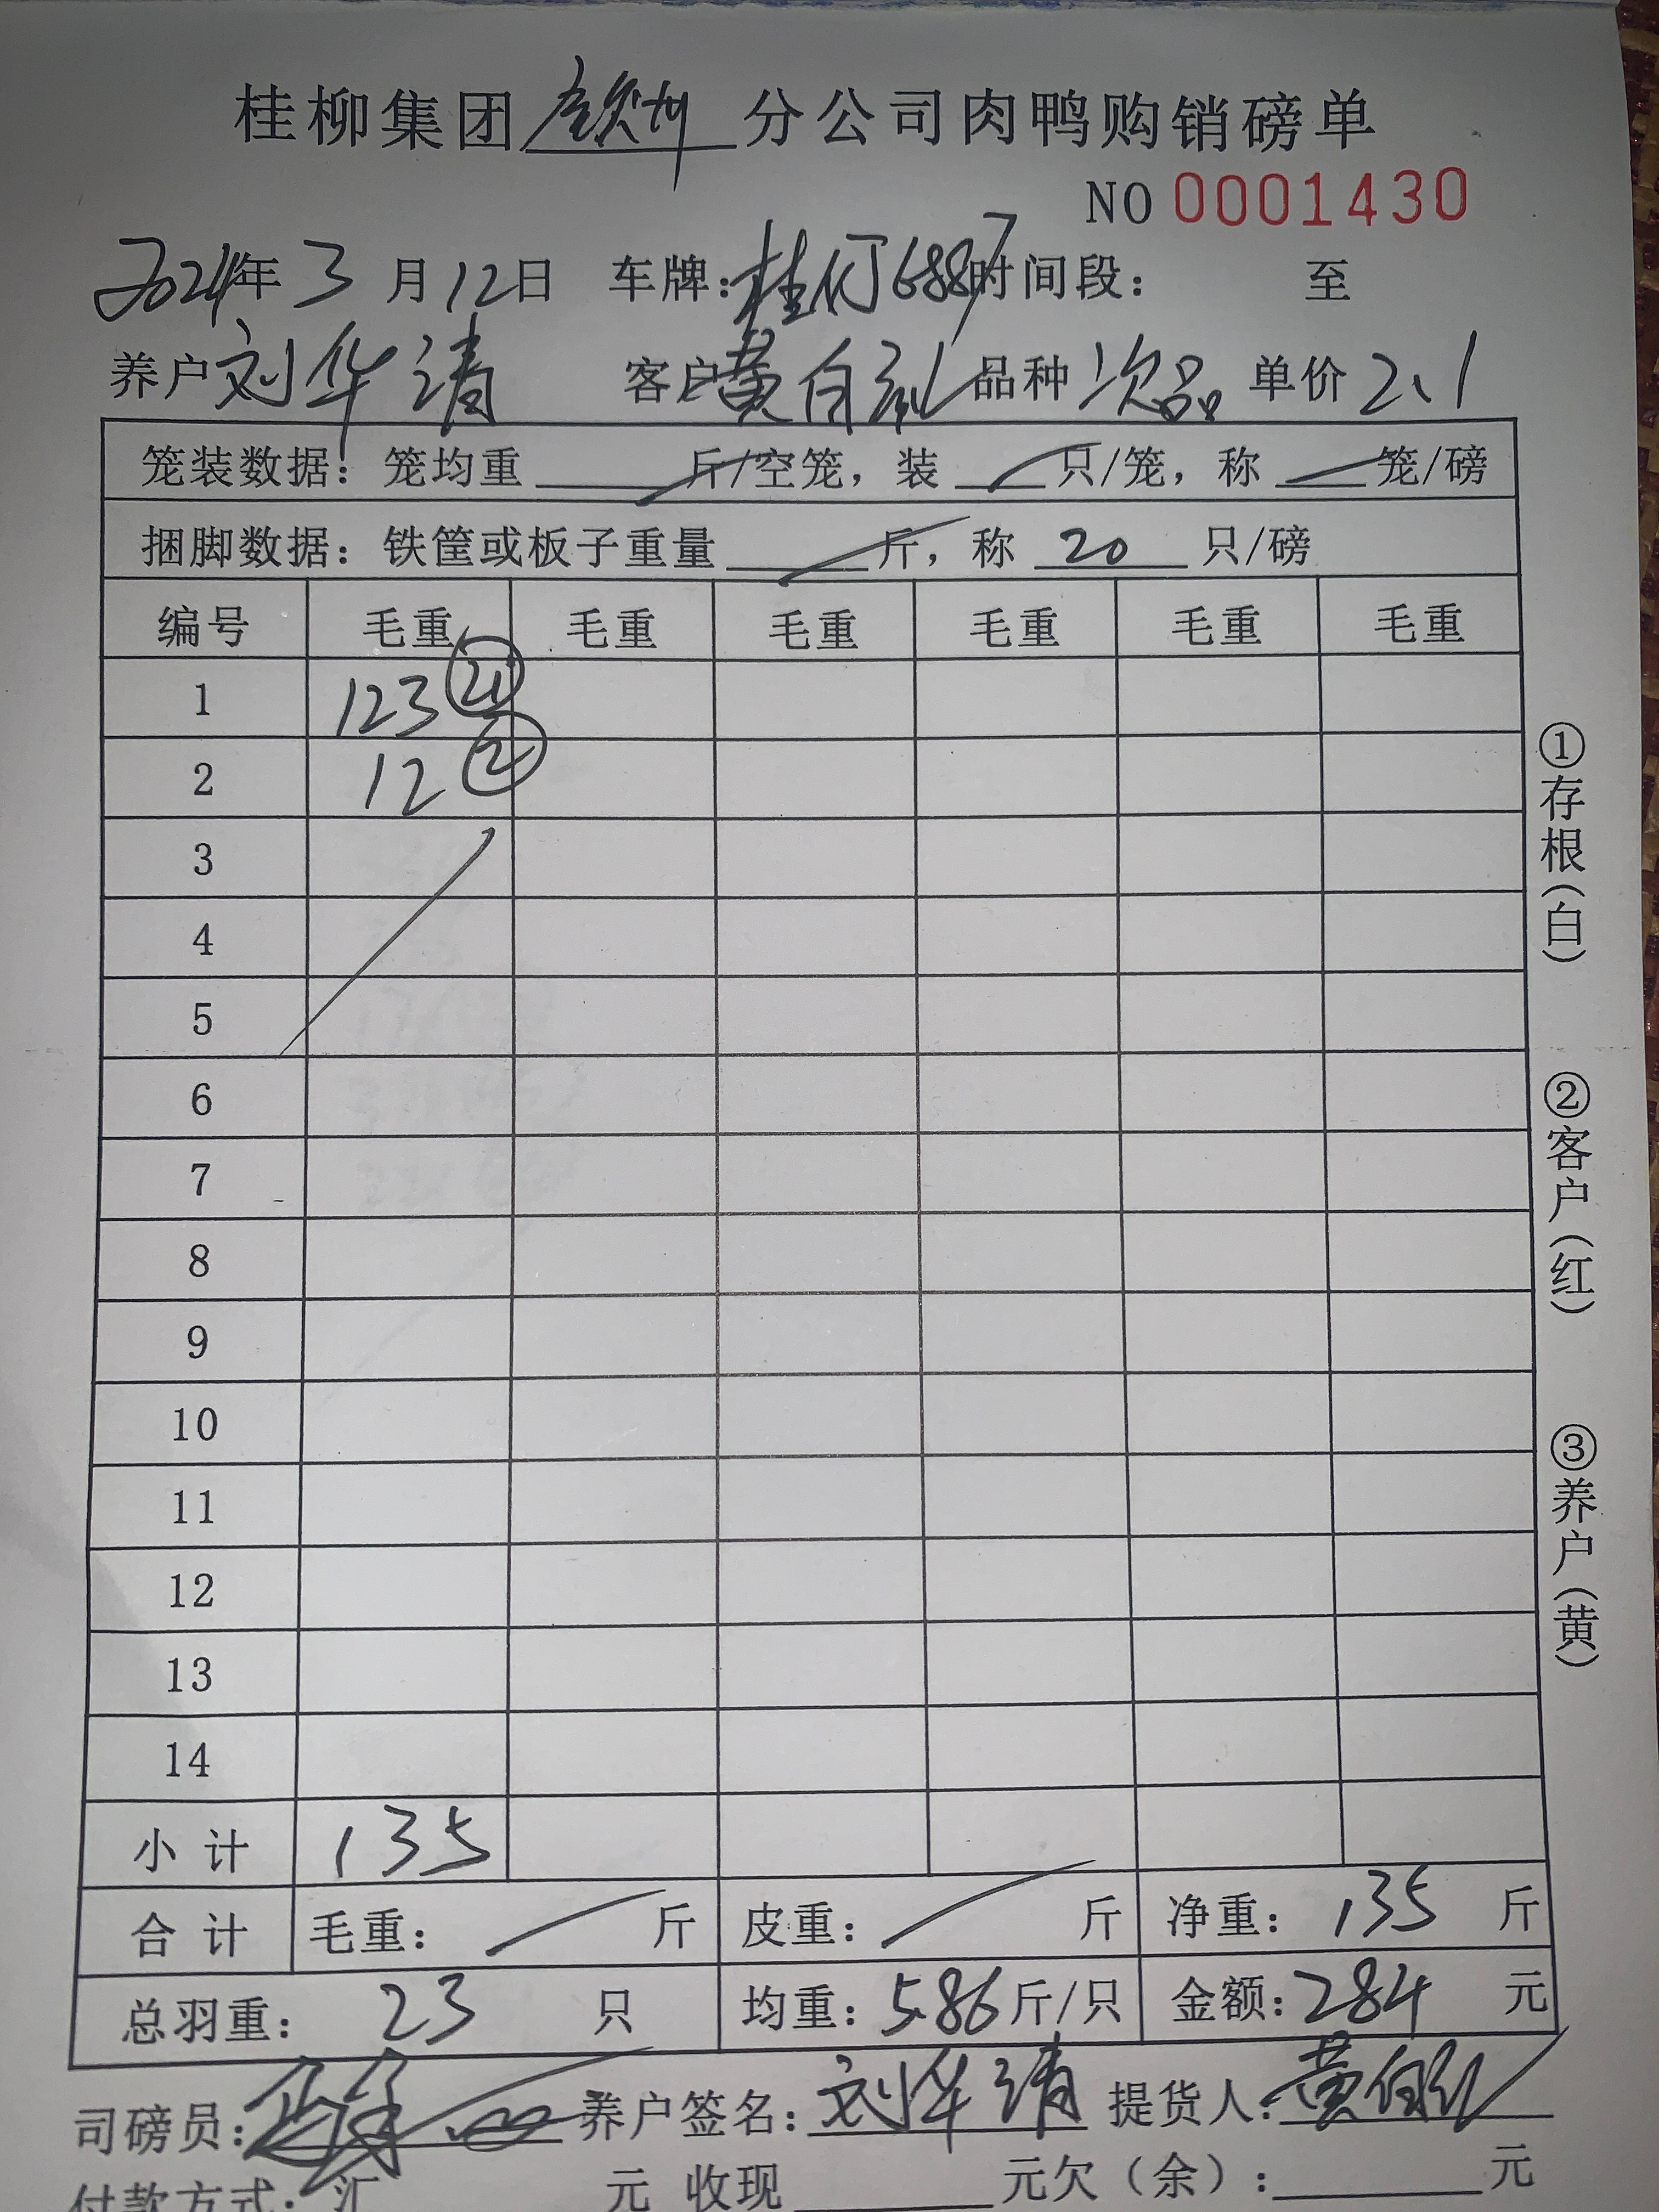 桂柳集团钦州分公司肉鸭购销磅单
NO 0001430
2024年3月12日 车牌：桂 6887 时间段： 至
养户 刘华清 客户 黄白 品种 次品 单价 2.1
笼装数据：笼均重 斤/空笼，装 只/笼，称 笼/磅
捆脚数据：铁筐或板子重量 斤，称 20 只/磅
编号 毛重 毛重 毛重 毛重 毛重 毛重
1 123 21
2 12 2
3
4
5
6
7
8
9
10
11
12
13
14
小计 135
合计 毛重： 斤 皮重： 斤 净重：135 斤
总羽重：23 只 均重：5.86 斤/只 金额：284 元
司磅员： 养户签名：刘华清 提货人：黄
付款方式：汇 元 收现 元欠（余）： 元
①存根（白）
②客户（红）
③养户（黄）